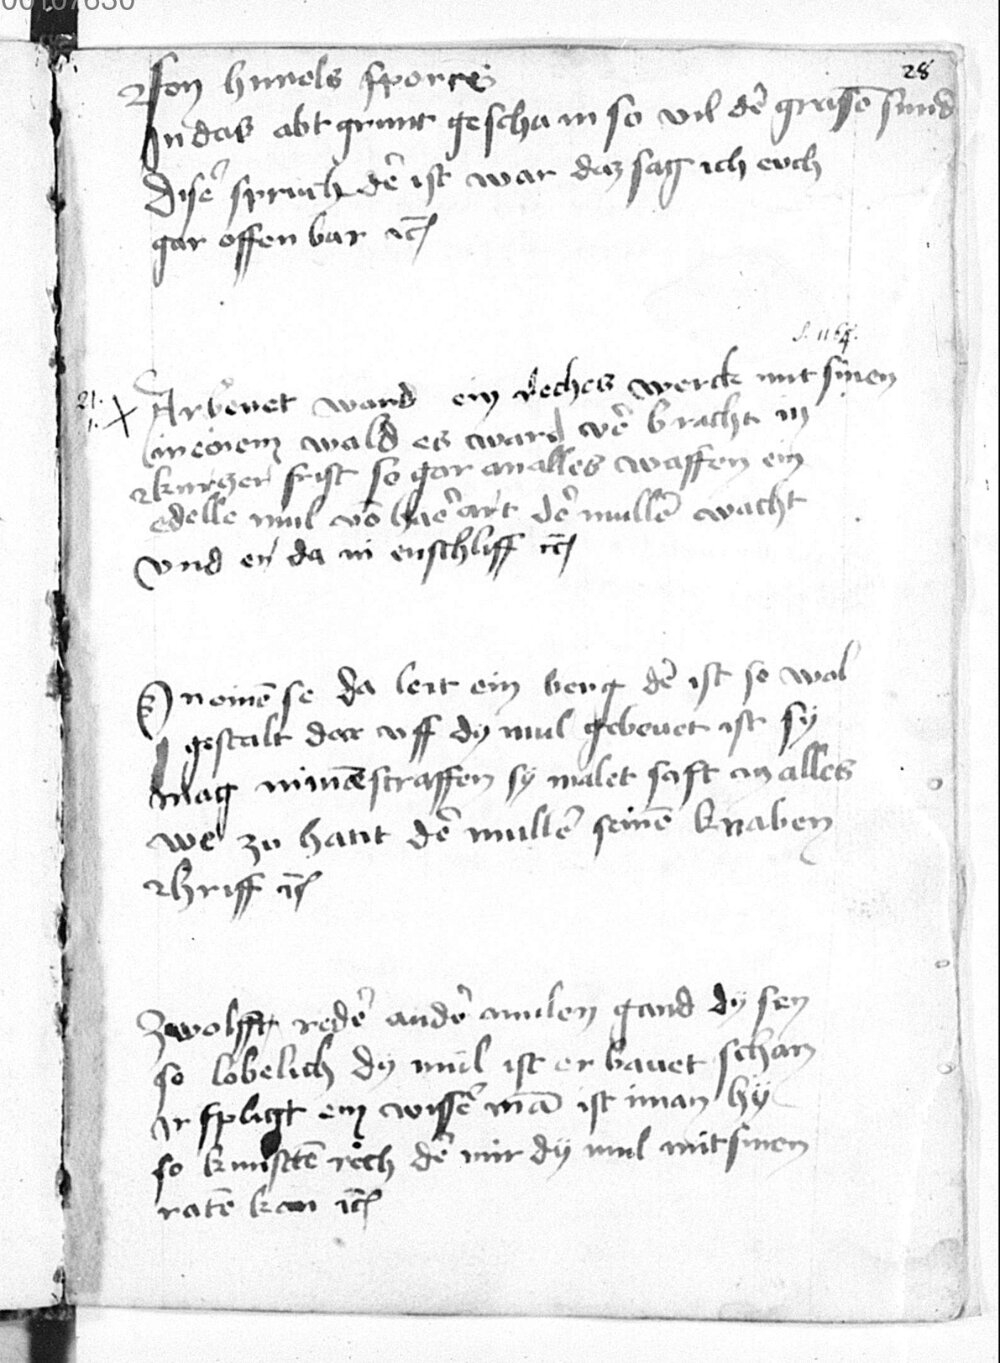 00107630
28
fon himels sporte
In das abt grunt gescha in so vil dē grosē sund
Disē spruch dē ist war daz sag ich euch
gar offen bar ꝛc
s. 116
21. X Arbeuet ward ein reches werck mit sinen
in einem wald es ward vē bracht in
kurczer frist so gar an alles waffen ein
edelle mul vō art dē mullē wacht
vnd en da in enschliff ꝛc
In einē se da leit ein berg dē ist so wol
gestalt dar vff dy mul gebeuet ist sy
mag nimāstraffen sy malet saft an alles
we zu hant dē mullē seinē knaben
Rriff ꝛc
Zwolfft redē andē mulen gand dy sen
so lobelich dy mul ist er bauet schan
Ir fpligt ein wissē mā ist iman hy
so kunstē rech dē mir dy mul mit sinen
ratē kan ꝛc